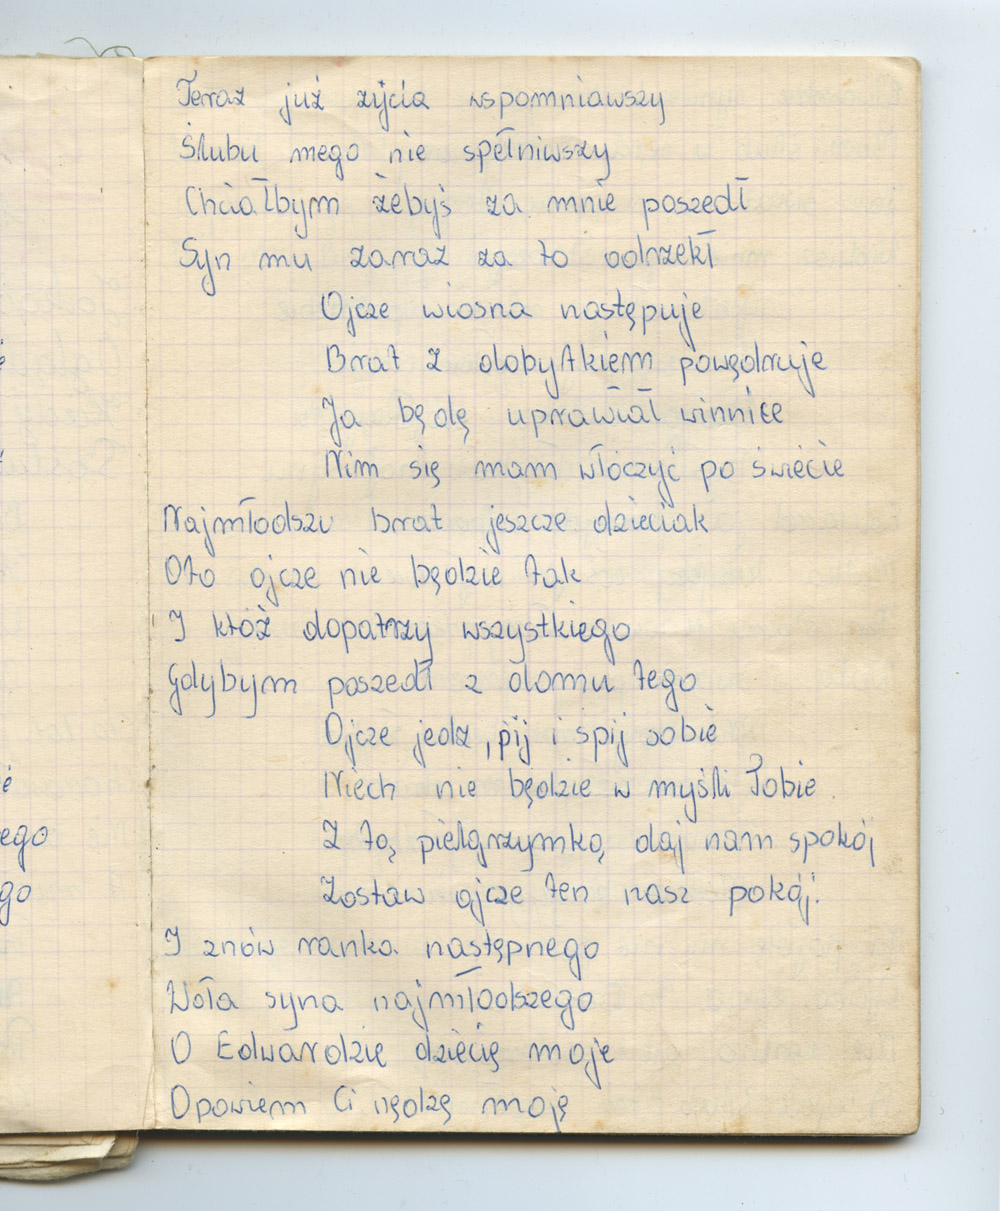 Teraz już życia wspomniawszy
Ślubu mego nie spełniwszy
Chciałbym żebyś za mnie poszedł
Syn mu zaraz za to odrzekł
Ojcze wiosna następuje
Brat z dobytkiem powędruje
Ja będę uprawiał winnice
Nim się mam włóczyć po świécie
Najmłodszy brat jeszcze dzieciak
Oto ojcze nie będzie tak
I któż dopatrzy wszystkiego
Gdybym poszedł z domu tego
Ojcze jedz, pij i śpij sobie
Niech nie będzie w myśli Tobie
Z tą pielgrzymką daj nam spokój
Zostaw ojcze ten nasz pokój.
I znów ranka następnego
Woła syna najmłodszego
O Edwardzie dziecię moje
Opowiem Ci nędzę moję
ego
go